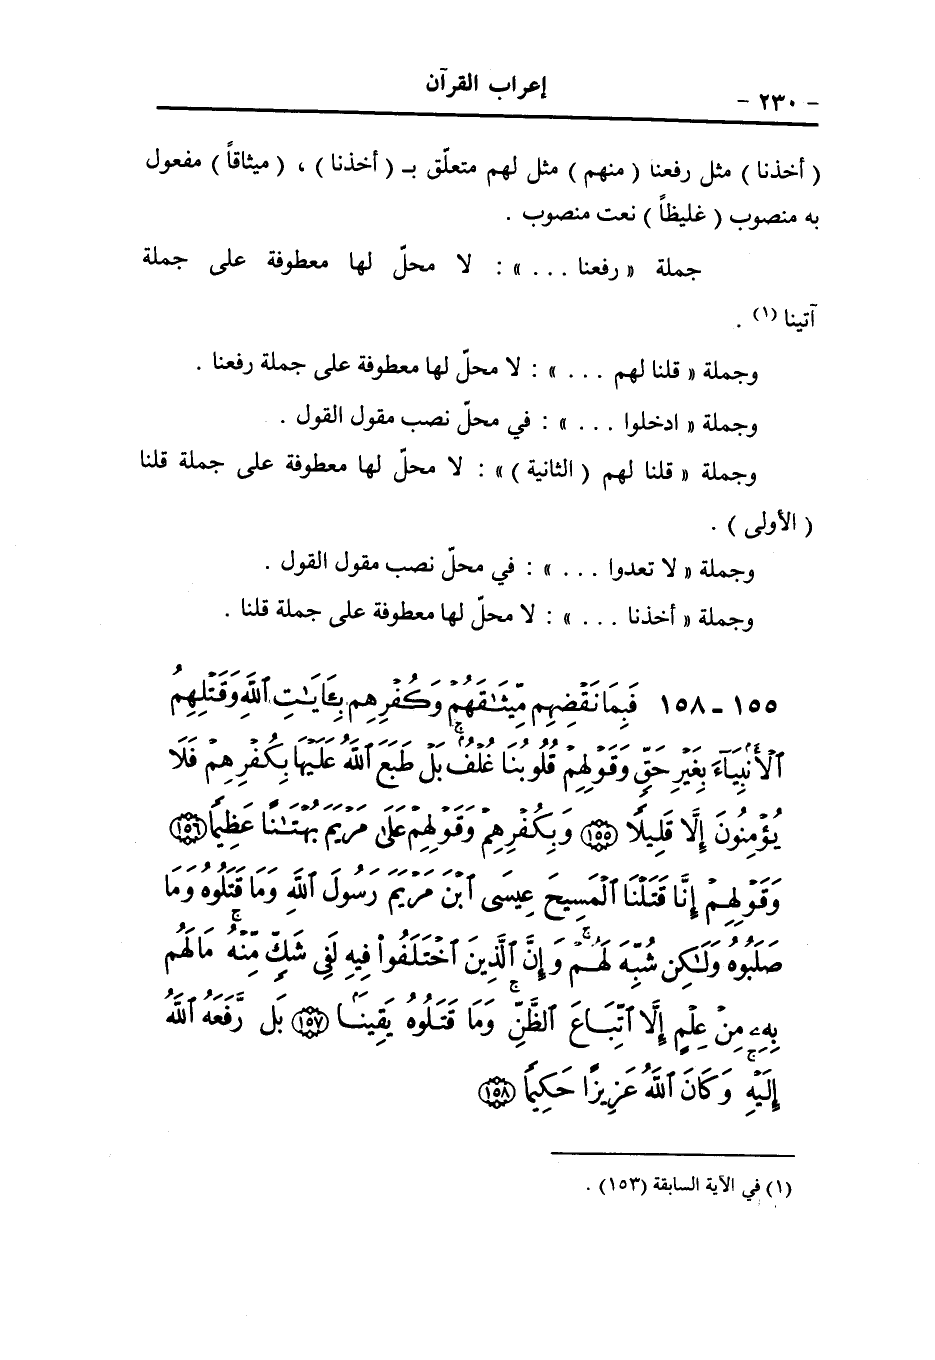 إعراب القرآن
- ٢٣٠ -
( أخذنا ) مثل رفعنا ( منهم ) مثل لهم متعلّق بـ ( أخذنا ) ، ( ميثاقاً ) مفعول
به منصوب ( غليظاً ) نعت منصوب .
جملة « رفعنا . . . » : لا محلّ لها معطوفة على جملة
آتينا (١) .
وجملة « قلنا لهم . . . » : لا محلّ لها معطوفة على جملة رفعنا .
وجملة « ادخلوا . . . » : في محلّ نصب مقول القول .
وجملة « قلنا لهم ( الثانية ) » : لا محلّ لها معطوفة على جملة قلنا
( الأولى ) .
وجملة « لا تعدوا . . . » : في محلّ نصب مقول القول .
وجملة « أخذنا . . . » : لا محلّ لها معطوفة على جملة قلنا .
١٥٥ - ١٥٨ فَبِمَا نَقْضِهِم مِّيثَٰقَهُمْ وَكُفْرِهِم بِـَٔايَٰتِ ٱللَّهِ وَقَتْلِهِمُ
ٱلْأَنۢبِيَآءَ بِغَيْرِ حَقٍّ وَقَوْلِهِمْ قُلُوبُنَا غُلْفٌۢ ۚ بَلْ طَبَعَ ٱللَّهُ عَلَيْهَا بِكُفْرِهِمْ فَلَا
يُؤْمِنُونَ إِلَّا قَلِيلًا ١٥٥ وَبِكُفْرِهِمْ وَقَوْلِهِمْ عَلَىٰ مَرْيَمَ بُهْتَٰنًا عَظِيمًا ١٥٦
وَقَوْلِهِمْ إِنَّا قَتَلْنَا ٱلْمَسِيحَ عِيسَى ٱبْنَ مَرْيَمَ رَسُولَ ٱللَّهِ وَمَا قَتَلُوهُ وَمَا
صَلَبُوهُ وَلَٰكِن شُبِّهَ لَهُمْ ۚ وَإِنَّ ٱلَّذِينَ ٱخْتَلَفُوا۟ فِيهِ لَفِى شَكٍّ مِّنْهُ ۚ مَا لَهُم
بِهِۦ مِنْ عِلْمٍ إِلَّا ٱتِّبَاعَ ٱلظَّنِّ ۚ وَمَا قَتَلُوهُ يَقِينًۢا ١٥٧ بَل رَّفَعَهُ ٱللَّهُ
إِلَيْهِ ۚ وَكَانَ ٱللَّهُ عَزِيزًا حَكِيمًا ١٥٨
(١) في الآية السابقة (١٥٣) .